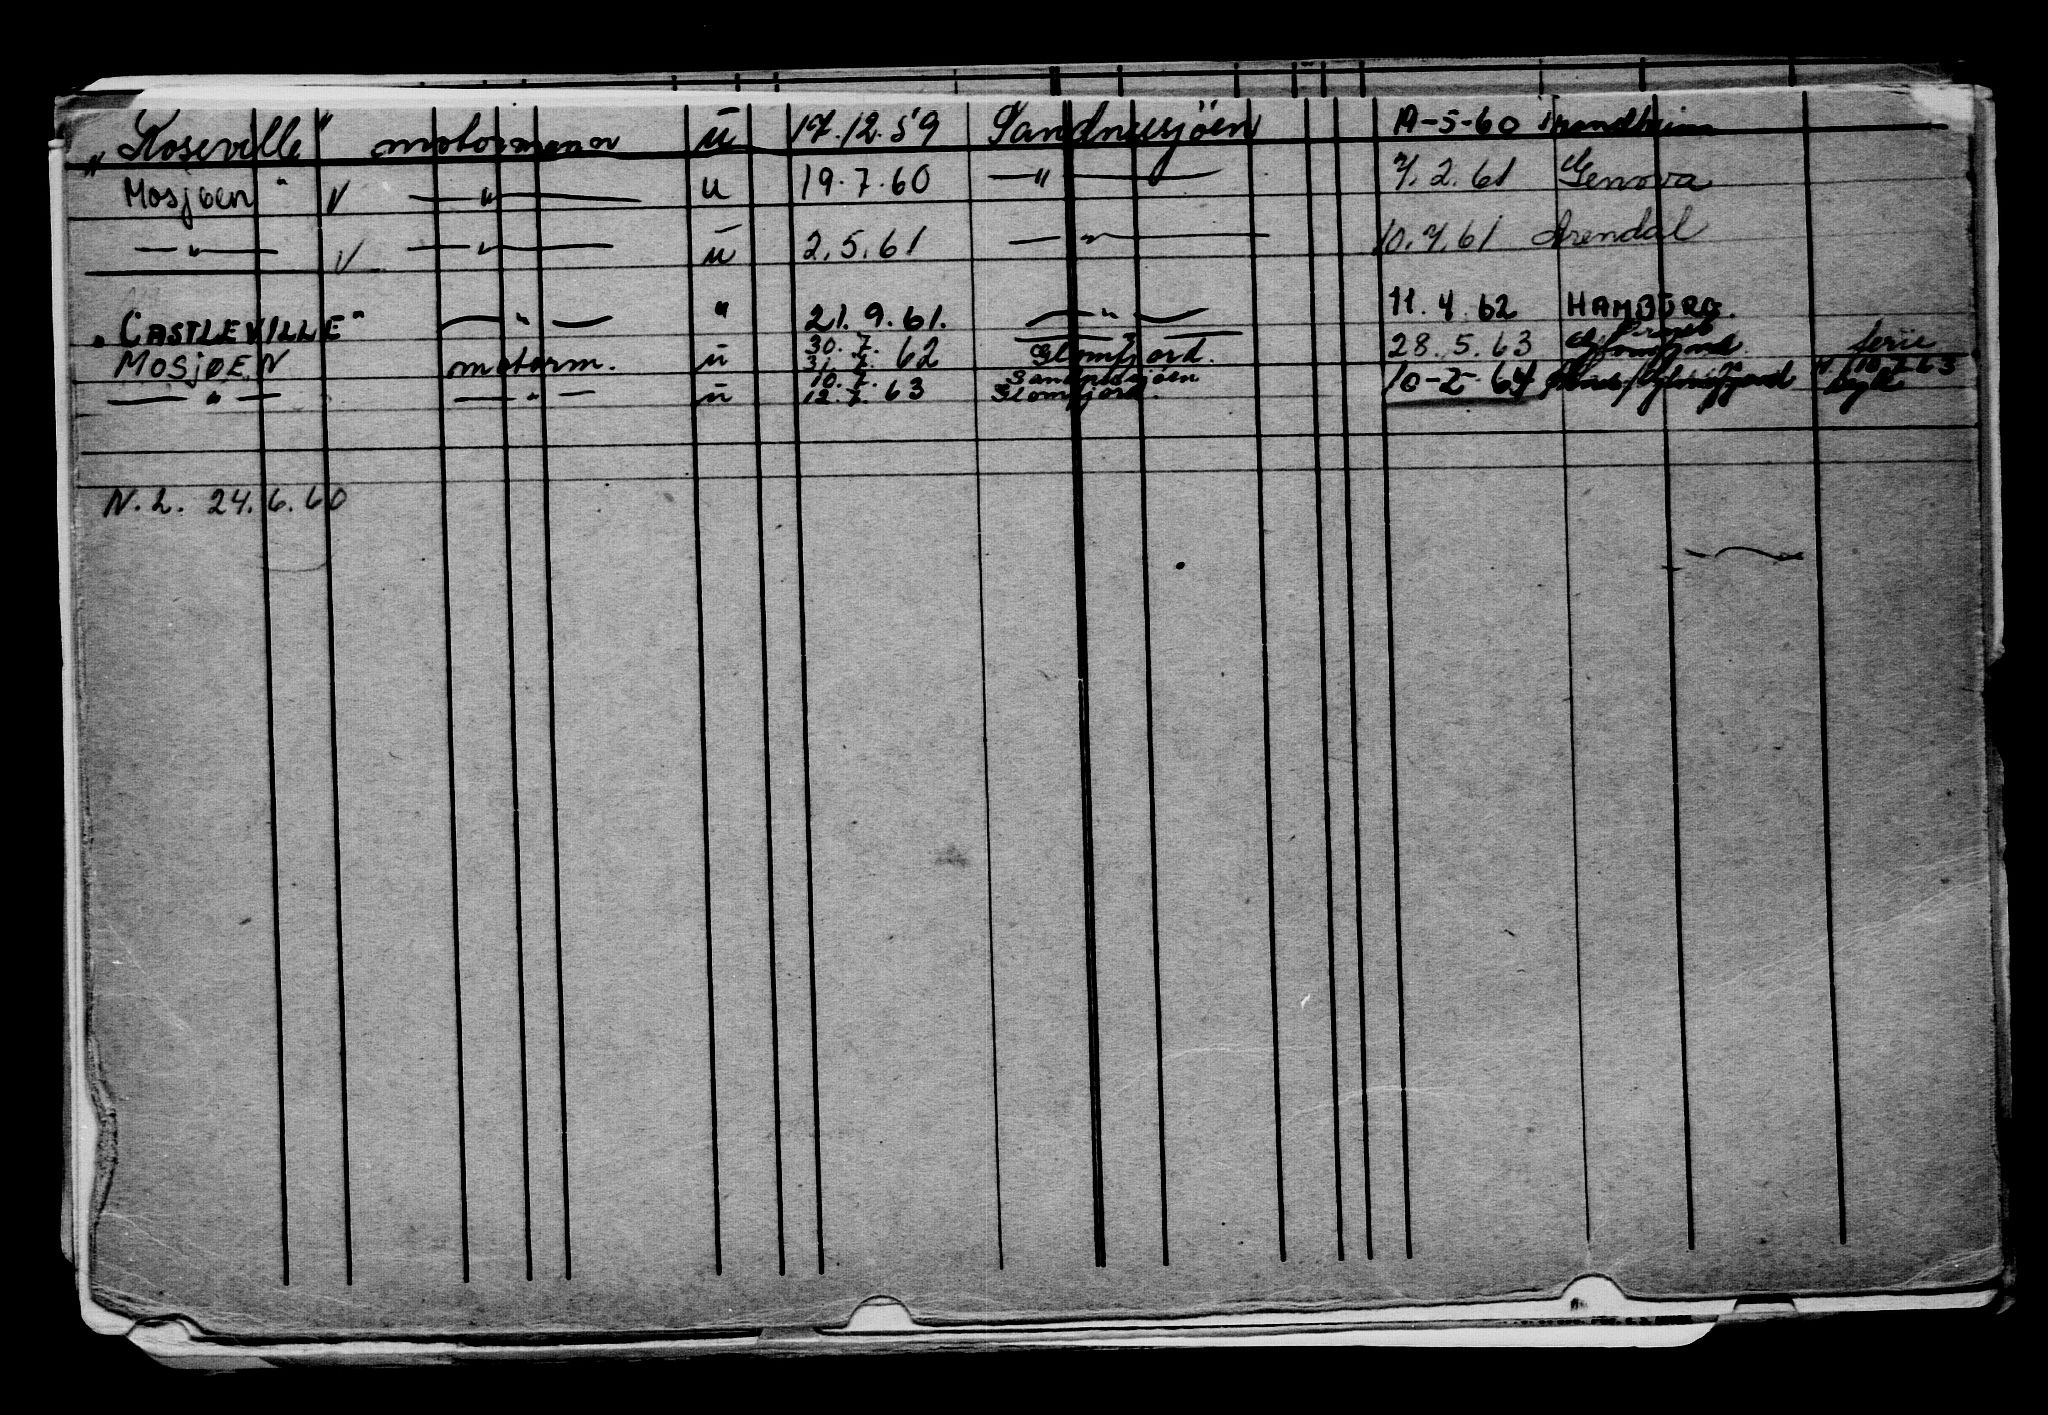 „Roseville" motormann ū 17.12.59 Sandnessjöen 19-5-60 Trondheim
Mosjøen " V —"— u 19.7.60 —"— 7.2.61 Genova
—"— V —"— ū 2.5.61 —"— 10.7.61 Arendal
"CASTLEVILLE" —"— " 21.9.61. —"— 11.4.62 HAMBURG.
MOSJØEN motorm. ū 30.7. 31.7. 62 Glomfjord. 28.5.63 Glomfjord ferie
—"— —"— ū 10.7. 12.7. 63 Sandnessjøen Glomfjord. 10-2-64 10.7.63 syk
N.L. 24.6.60